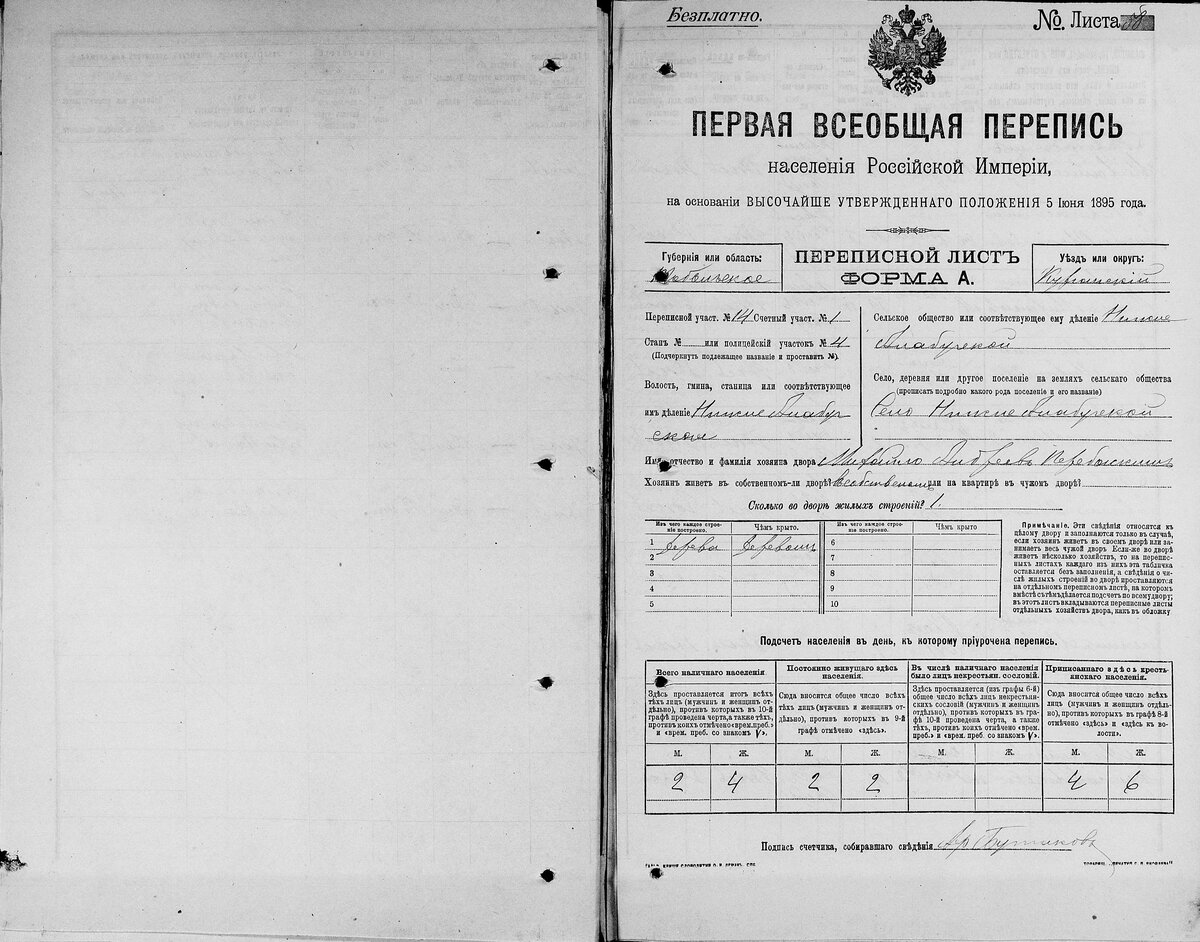 Безплатно.
№ Листа
ПЕРВАЯ ВСЕОБЩАЯ ПЕРЕПИСЬ
населенія Россійской Имперіи,
на основаніи ВЫСОЧАЙШЕ УТВЕРЖДЕННАГО ПОЛОЖЕНІЯ 5 Іюня 1895 года.
Губернія или область:
Тобольское
ПЕРЕПИСНОЙ ЛИСТЪ
ФОРМА А.
Уѣздъ или округъ:
Курганскій
Переписной участ. № 14 Счетный участ. № 1
Станъ № или полицейскій участокъ № 4
(Подчеркнуть подлежащее названіе и проставить №).
Волость, гмина, станица или соотвѣтствующее
имъ дѣленіе Нижне Алабуг
ской
Сельское общество или соотвѣтствующее ему дѣленіе Нижне
Алабугской
Село, деревня или другое поселеніе на земляхъ сельскаго общества
(прописать подробно какого рода поселеніе и его названіе)
Село Нижне Алабугской
Имя, отчество и фамилія хозяина двора Михайло Андреевъ
Хозяинъ живетъ въ собственномъ-ли дворѣ? или на квартирѣ въ чужомъ дворѣ?
Сколько во дворѣ жилыхъ строеній? 1.
Изъ чего каждое строеніе построено.
Чѣмъ крыто.
Изъ чего каждое строеніе построено.
Чѣмъ крыто
1 Дерева Деревомъ 6
2 7
3 8
4 9
5 10
Примѣчаніе. Эти свѣдѣнія относятся къ
цѣлому двору и заполняются только въ случаѣ,
если хозяинъ живетъ въ своемъ дворѣ или за-
нимаетъ весь чужой дворъ Если-же во дворѣ
живетъ нѣсколько хозяйствъ, то на перепис-
ныхъ листахъ каждаго изъ нихъ эта табличка
оставляется безъ заполненія, а свѣдѣнія о чи-
слѣ жилыхъ строеній во дворѣ проставляются
на отдѣльномъ переписномъ листѣ, на которомъ
вмѣстѣ съ тѣмъ дѣлается подсчетъ по всему двору;
въ этотъ листъ вкладываются переписные листы
отдѣльныхъ хозяйствъ двора, какъ въ обложку
Подсчетъ населенія въ день, къ которому пріурочена перепись.
Всего наличнаго населенія
Здѣсь проставляется итогъ всѣхъ
тѣхъ лицъ (мужчинъ и женщинъ от-
дѣльно), противъ которыхъ въ 10-й
графѣ проведена черта, а также тѣхъ,
противъ коихъ отмѣчено «врем. преб.»
и «врем. преб. со знакомъ V».
Постоянно живущаго здѣсь
населенія.
Сюда вносится общее число всѣхъ
тѣхъ лицъ (мужчинъ и женщинъ от-
дѣльно), противъ которыхъ въ 9-й
графѣ отмѣчено «здѣсь».
Въ числѣ наличнаго населенія
было лицъ некрестьян. сословій.
Здѣсь проставляется (изъ графы 6-й)
общее число всѣхъ лицъ некрестьян-
скихъ сословій (мужчинъ и женщинъ
отдѣльно), противъ которыхъ въ гра-
фѣ 10-й проведена черта, а также
тѣхъ, противъ коихъ отмѣчено «врем.
преб.» и «врем. преб. со знакомъ V».
Приписаннаго здѣсь кресть-
янскаго населенія.
Сюда вносится общее число всѣхъ
лицъ (мужчинъ и женщинъ отдѣль-
но), противъ которыхъ въ графѣ 8-й
отмѣчено «здѣсь» и «здѣсь къ во-
лости».
М. Ж. М. Ж. М. Ж. М. Ж.
2 4 2 2 4 6
Подпись счетчика, собиравшаго свѣдѣнія